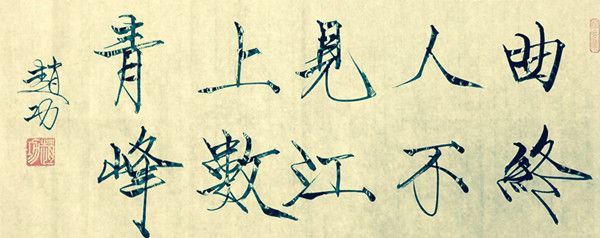 曲終
人不
見江
上數
青峰
趙功